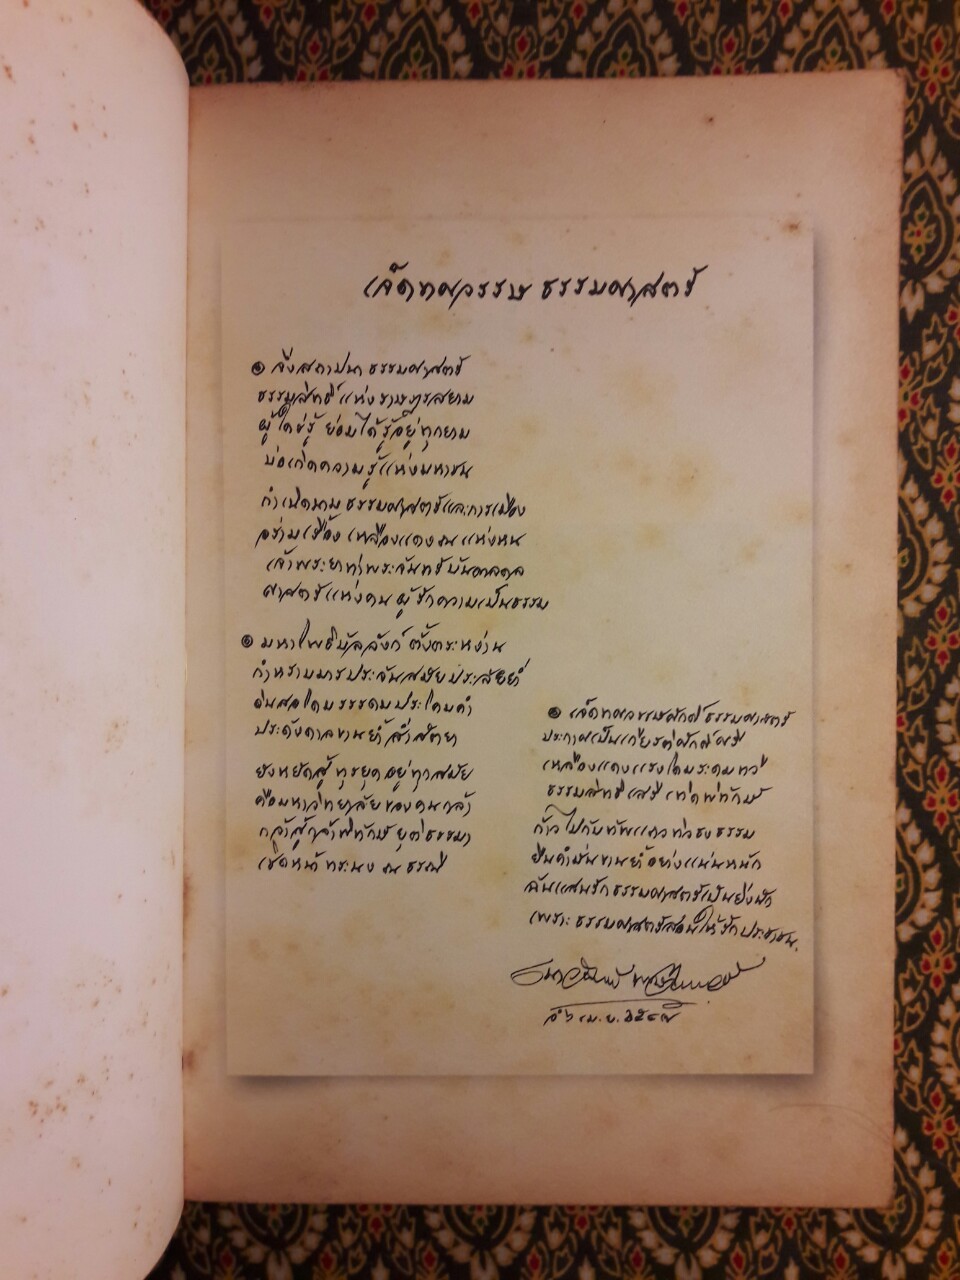 เจ็ดทศวรรษ ธรรมศาสตร์
๏ จึ่งสถาปนา ธรรมศาสตร์
ธรรมสิทธิ์แห่งราษฎรสยาม
ผู้ใดใช่รู้ ย่อมได้รู้อยู่ทุกยาม
บ่อเกิดความรู้แห่งมหาชน
กำเนิดนาม ธรรมศาสตร์และการเมือง
อร่ามเรือง เหลืองแดง ณ แห่งหน
เจ้าพระยาท่าพระจันทร์บันดาลดล
ศาสตร์แห่งคน ผู้รักความเป็นธรรม
๏ มหาโพธิบัลลังก์ ตั้งตระหง่าน
กำหราบมารประจันสมัยประลัยย่ำ
ประดังดาลขานย้ำสำสัตยา
ยังหยัดสู้ ทุรยุค อยู่ทุกสมัย
คือมหาวิทยาลัยของคนกล้า
กล้าสู้กล้าพิทักษ์ยุติธรรมา
เชิดหน้าทระนง ณ ธรณี
๏ เจ็ดทศวรรษศักดิ์ธรรมศาสตร์
ประกาศเป็นเกียรติศักดิ์ศรี
เหลืองแดงแรงโดมระดมทวี
ธรรมสิทธิ์เสรี เทิดพิทักษ์
ก้าวไปกับทัพแถวทิวธงธรรม
ยืนคำมั่นขานย้ำอย่างแน่นหนัก
ฉันแสนรักธรรมศาสตร์เป็นยิ่งนัก
เพราะธรรมศาสตร์สอนให้รักประชาชน.
เนาวรัตน์ พงษ์ไพบูลย์